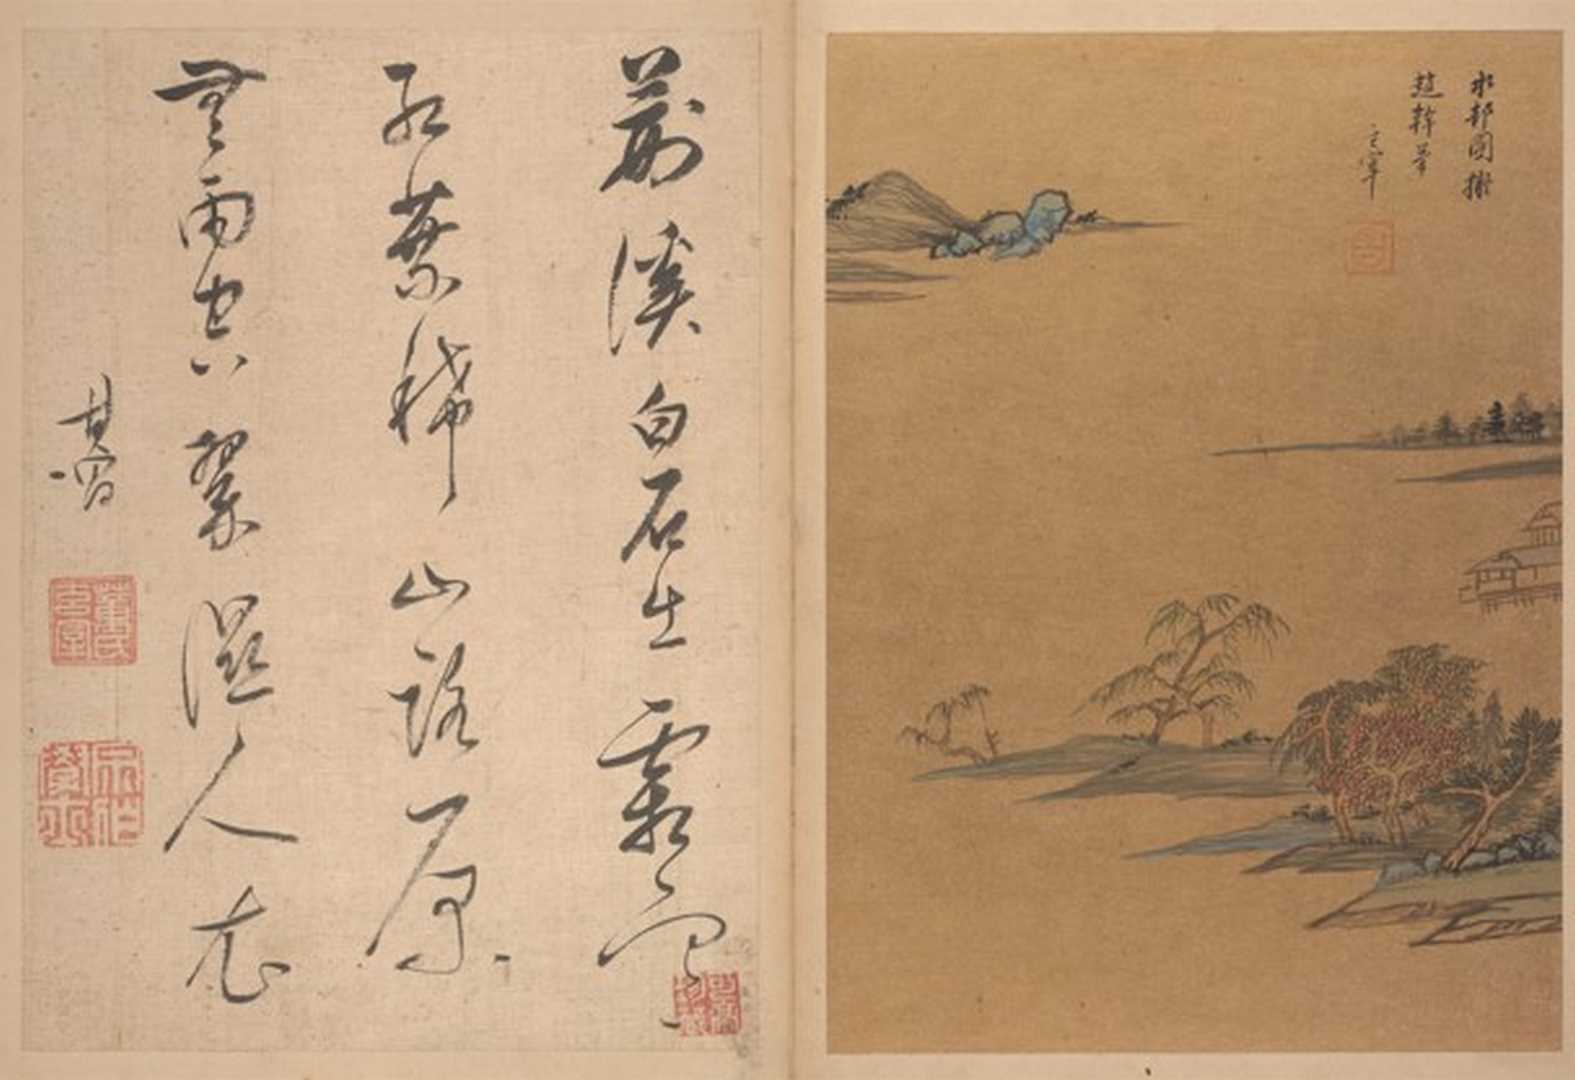 水邨圖擬
趙榦筆
玄宰
荊溪白石出霜空
紅葉稀山路原
無雨空翠濕人衣
其昌